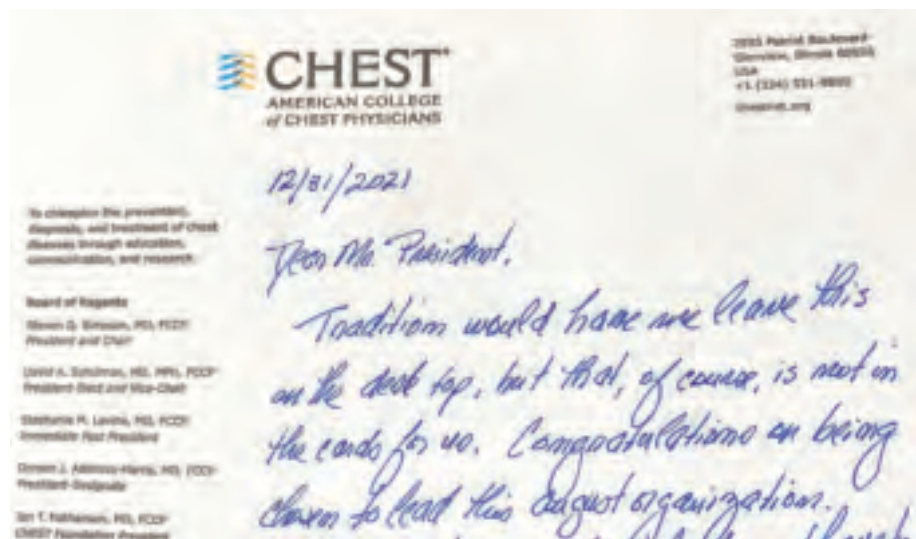 CHEST®
AMERICAN COLLEGE
of CHEST PHYSICIANS
Glenview, Illinois
USA
chestnet.org
12/31/2021
To champion the prevention,
diagnosis, and treatment of chest
diseases through education,
communication, and research
Board of Regents
Steven Q. Simpson, MD, FCCP
President and Chair
David A. Schulman, MD, MPH, FCCP
President-Elect and Vice-Chair
Stephanie M. Levine, MD, FCCP
Immediate Past President
Doreen J. Addrizzo-Harris, MD, FCCP
President-Designate
Ian T. Nathanson, MD, FCCP
CHEST Foundation President
Dear Mr. President,
Tradition would have me leave this
on the desk top, but that, of course, is not in
the cards for us. Congratulations on being
chosen to lead this august organization.